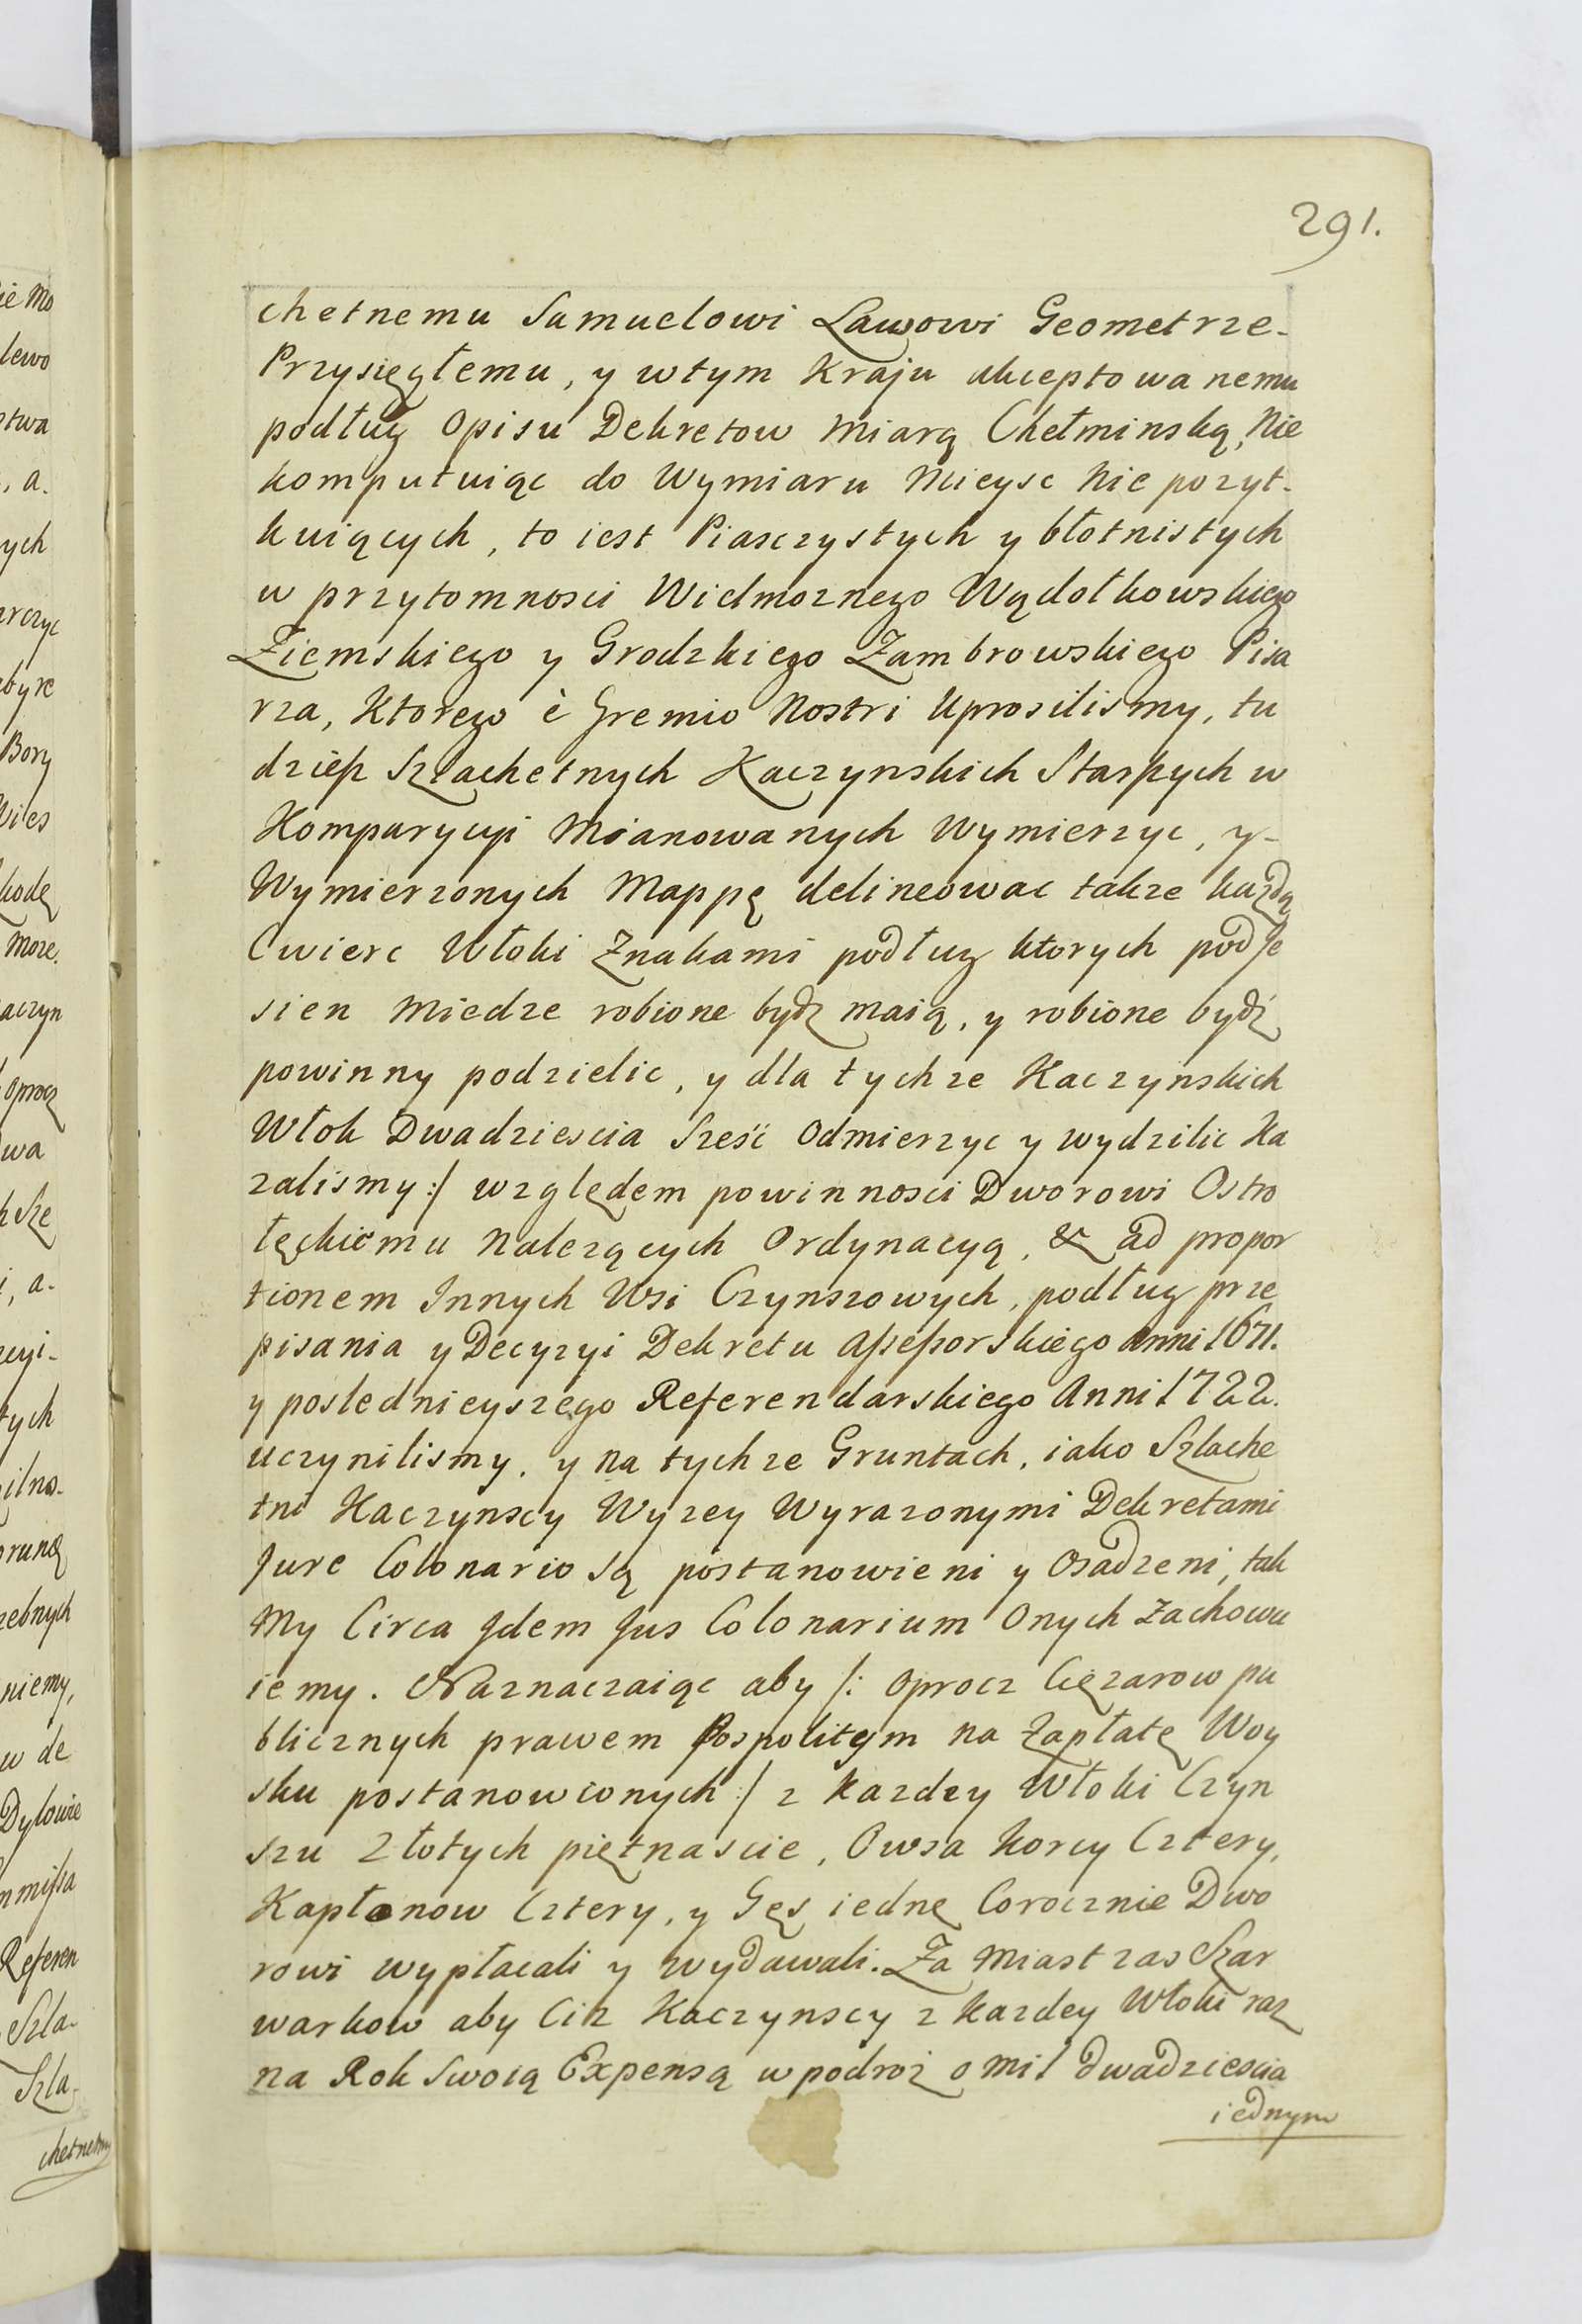 291.
chetnemu Samuelowi Lawowi Geometrze-
Przysięgłemu, y wtym Kraju akceptowanemu
podług Opisu Dekretow Miarą Chełminską, Nie
komputuiąc do Wymiaru Mieysc Nie pozyt-
kuiących, to iest Piasczystych y błotnistych
w przytomnosci Wielmoznego Wądołkowskiego
Ziemskiego y Grodzkiego Zambrowskiego Pisa
rza, Ktorego è Gremio Nostri Uprosilismy, tu
dzieß Szlachetnych Kaczynskich Starßych w
Komparycyi Mianowanych Wymierzyc, y-
Wymierzonych Mappę delineowac takze kazdą
Cwierc Włoki Znakami podług ktorych pod Je
sien Miedze robione bydz maią, y robione bydź
powinny podzielic, y dla tychze Kaczynskich
Włok Dwadziescia Sześć Odmierzyc y wydzilic Ka
zalismy :/ względem powinnosci Dworowi Ostro
łęckiemu Nalezących Ordynacyą, & ad propor
tionem Innych Wsi Czynszowych, podług prze
pisania y Decyzyi Dekretu Aßeßorskiego Anni 1671.
y poslednieyszego Referendarskiego Anni 1722.
uczynilismy, y na tychze Gruntach, iako Szlache
tni Kaczynscy Wyzey Wyrazonymi Dekretami
Jure Colonario są postanowieni y Osadzeni, tak
My Circa Idem Jus Colonarium Onych Zachowu
iemy. Naznaczaiąc aby /: oprocz Cięzarow pu
blicznych prawem Pospolitym na Zapłatę Woy
sku postanowionych :/ z kazdey Włoki Czyn
szu Złotych piętnascie, Owsa Korcy Cztery,
Kapłonow Cztery, y Gęs iednę Corocznie Dwo
rowi wypłacali y wydawali. Za Miast zas Szar
warkow aby Ciz Kaczynscy z kazdey Włoki raz
na Rok Swoią Expensą w podroż o mil dwadziescia
iednym
ie Mo
lewo
stwa
, a.
ych
Bory
kodę
more.
aczyn
oprocz
wa
i, a-
tych
zebnych
niemy,
w de
Referen
Szla-
Szla-
chetnemu